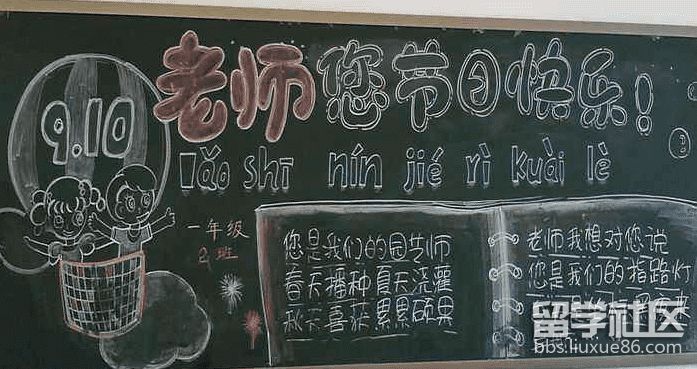 老师您节日快乐!
lǎo shī nín jié rì kuài lè
9.10
一年级
2班
您是我们的园艺师
春天播种 夏天浇灌
秋天喜获 累累硕果
老师我想对您说
您是我们的指路灯
留学社区
bbs.liuxue86.com